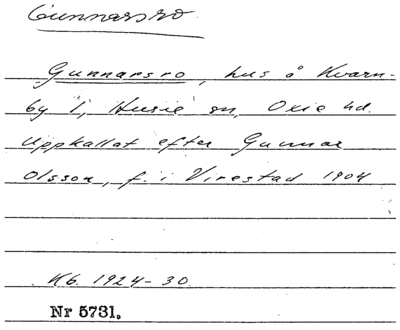 Gunnarsro
Gunnarsro, hus å Kvarn-
by 1, Husie sn, Oxie hd.
Uppkallat efter Gunnar
Olsson, f. i Virestad 1904
Kb. 1924-30.
Nr 5731.